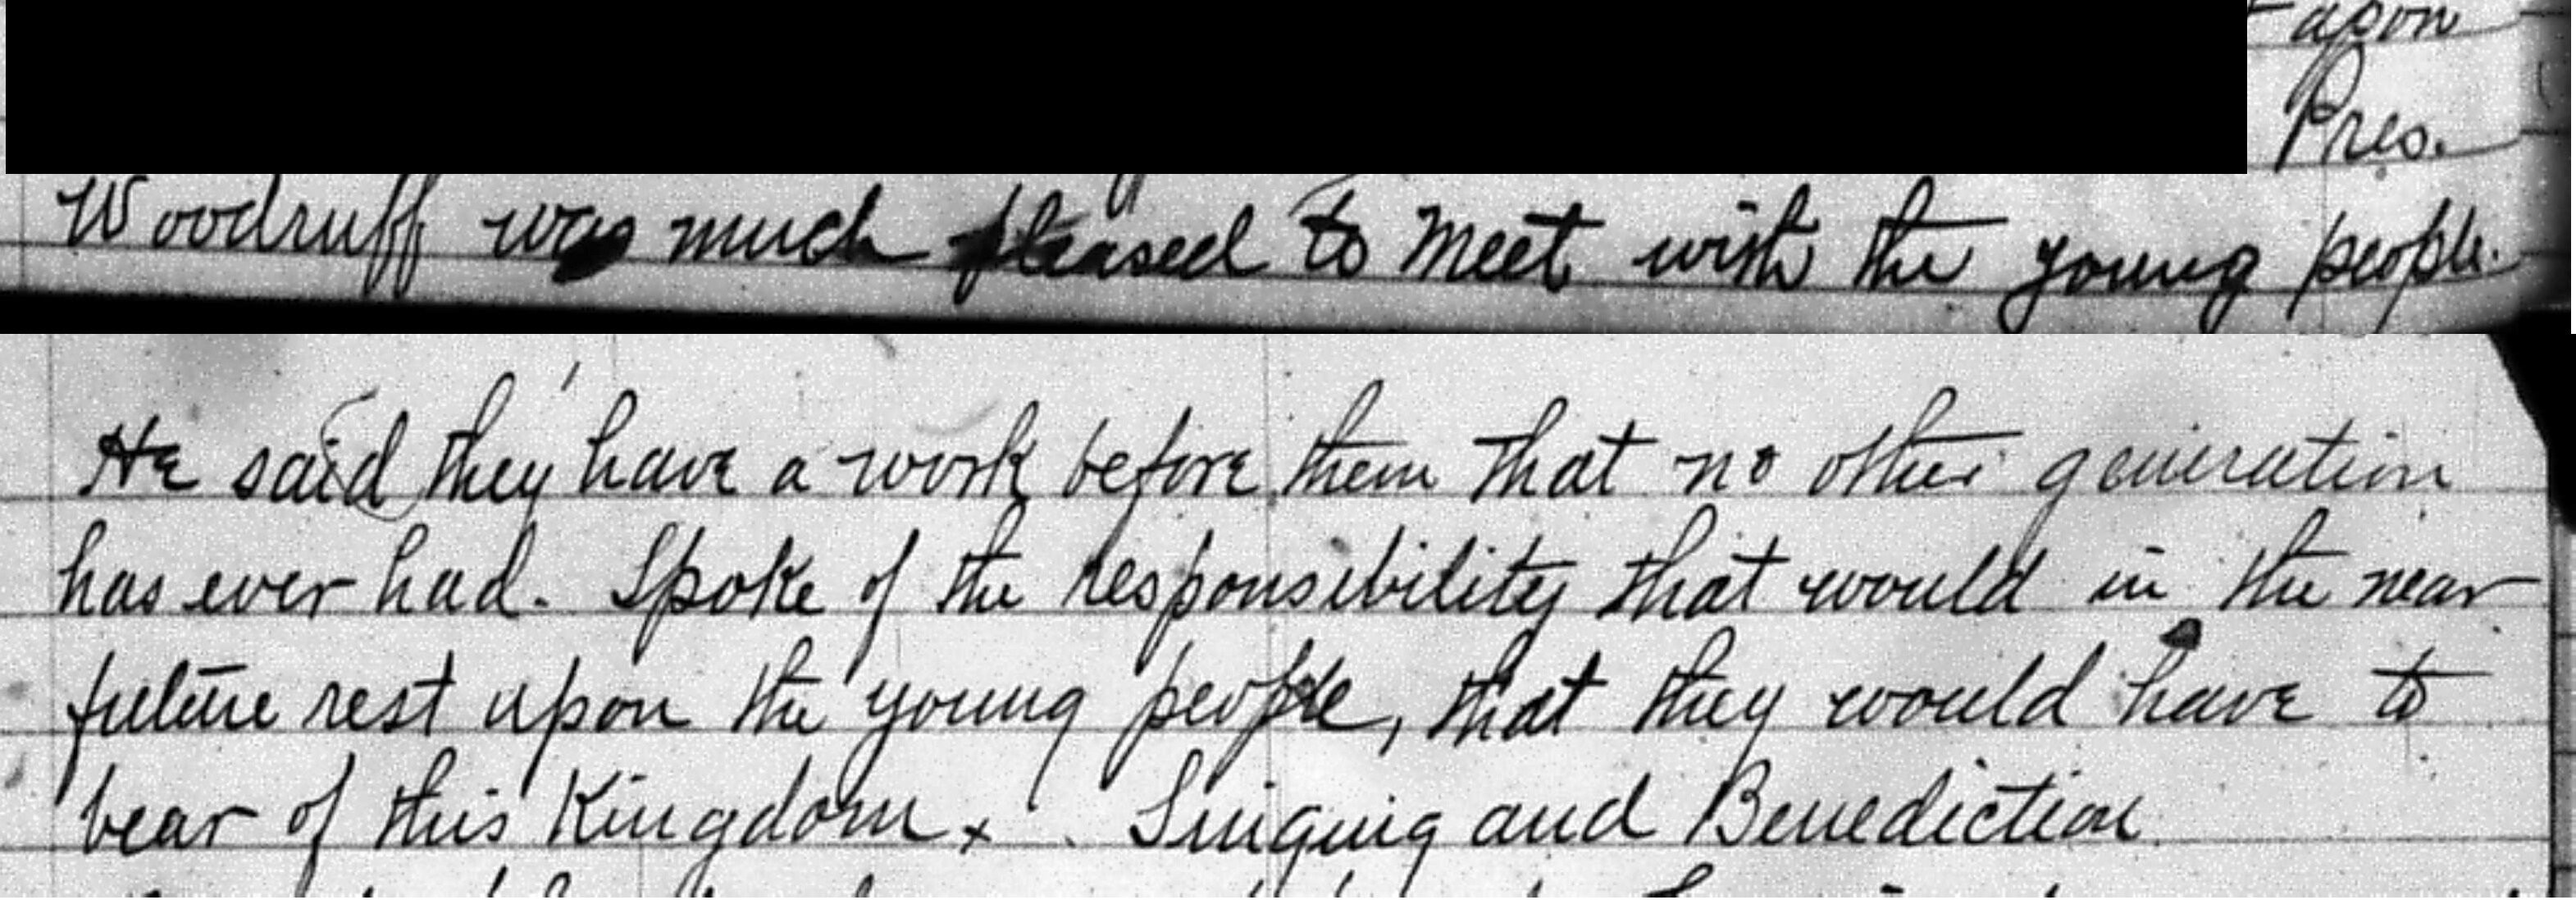 upon
Pres.
Woodruff was much pleased to meet with the young people.
He said they have a work before them that no other generation
has ever had. Spoke of the responsibility that would in the near
future rest upon the young people, that they would have to
bear of this Kingdom. Singing and Benediction